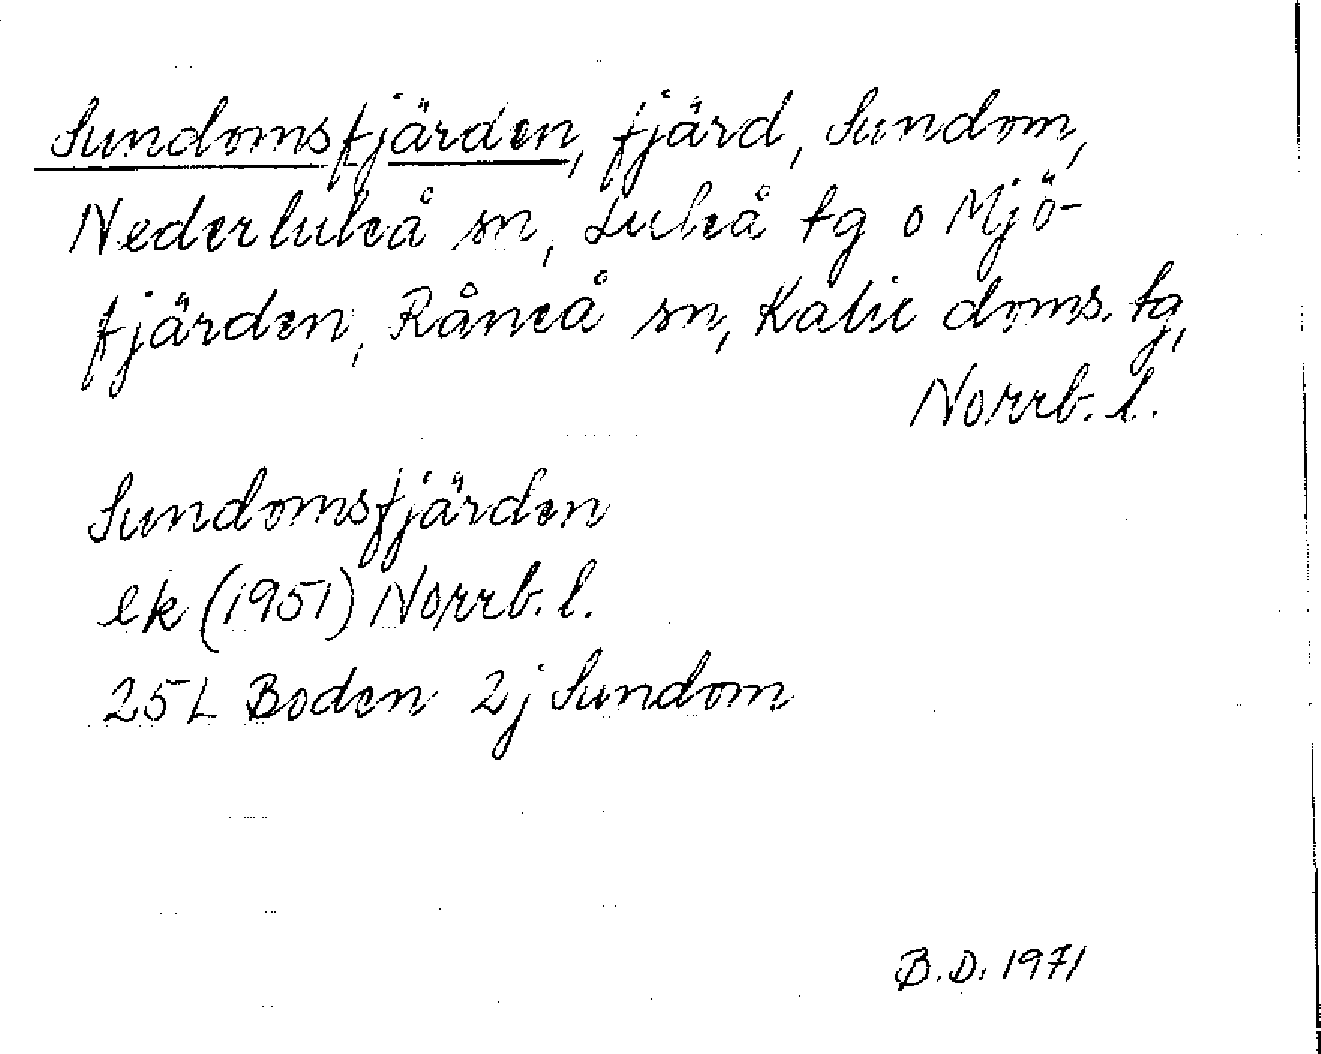 Sundomsfjärden, fjärd, Sundom,
Nederluleå sn, Luleå tg o Mjö-
fjärden, Råneå sn, Kalix doms. tg,
Norrb. l.
Sundomsfjärden
ek (1951) Norrb. l.
25 L Boden 2j Sundom
B.D. 1971